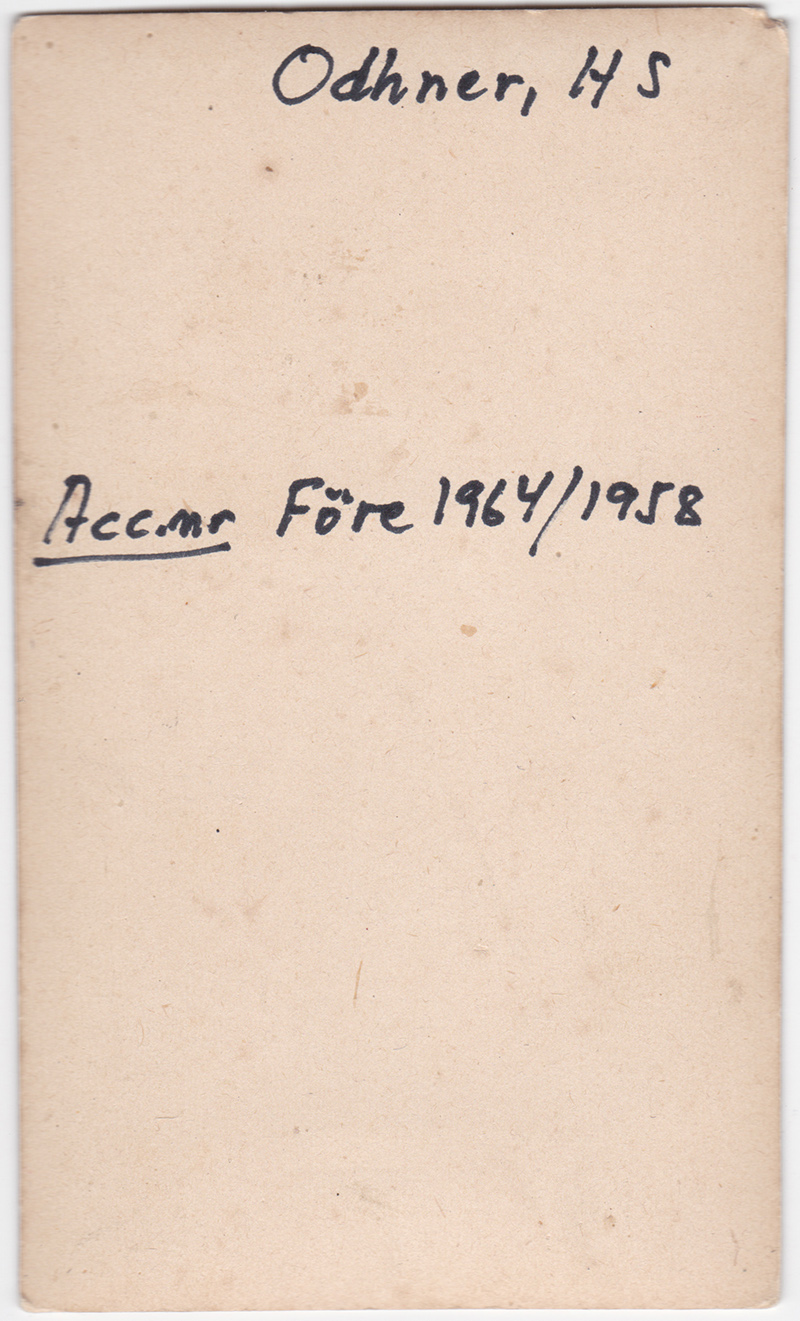 Odhner, H S
Acc.nr Före 1964/1958